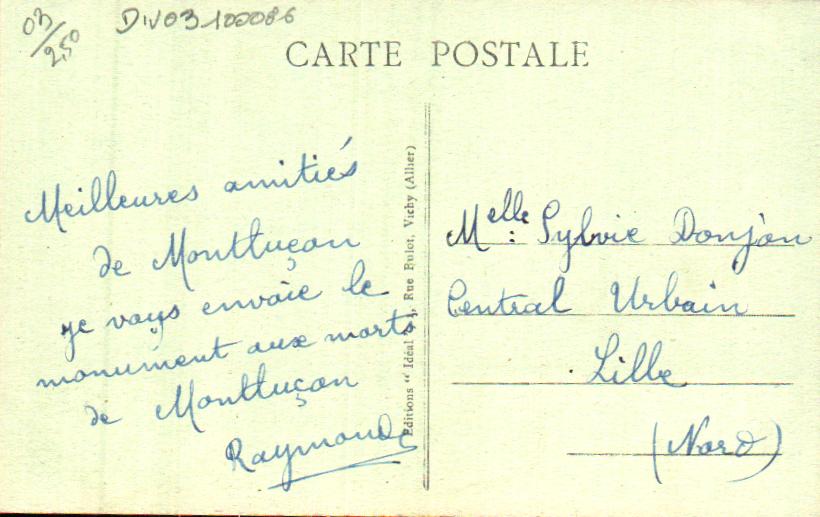 03/2,50
DIV03100086
CARTE POSTALE
Meilleures amitiés
de Montluçon
je vous envoie le
monument aux morts
de Montluçon
Raymonde
Editions " Idéal Rue Bulot, Vichy (Allier)
Melle: Sylvie Donjon
Central Urbain
Lille
(Nord)